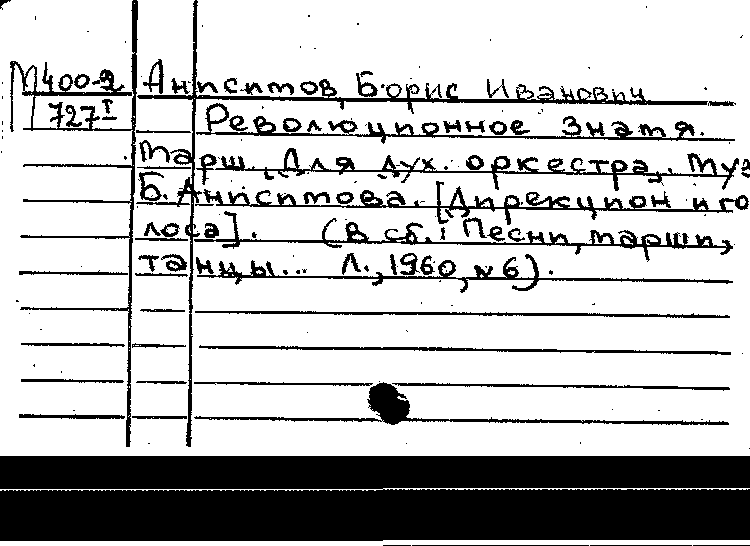 М400-2 Анисимов, Борис Иванович
727I Революционное знамя.
Марш. Для дух. оркестра. Муз
Б. Анисимова. [Дирекцион и го
лоса]. (В сб.: Песни, марши,
танцы... Л., 1960, №6).